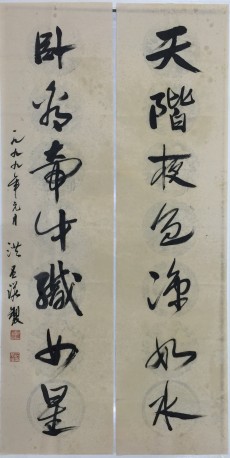 天階夜色涼如水
卧看牽牛織女星
一九九九年元月